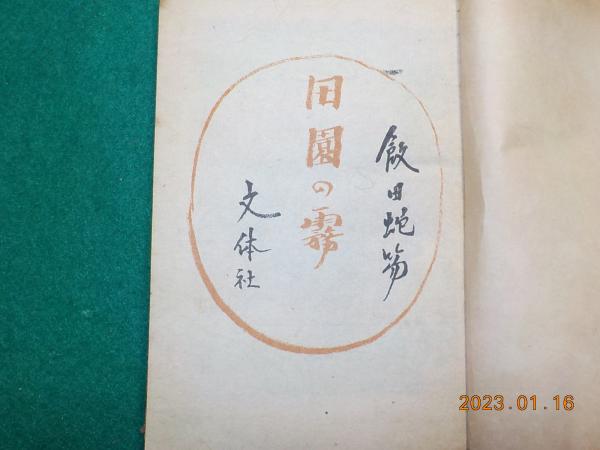 飯田蛇笏
田園の霧
文体社
2023.01.16